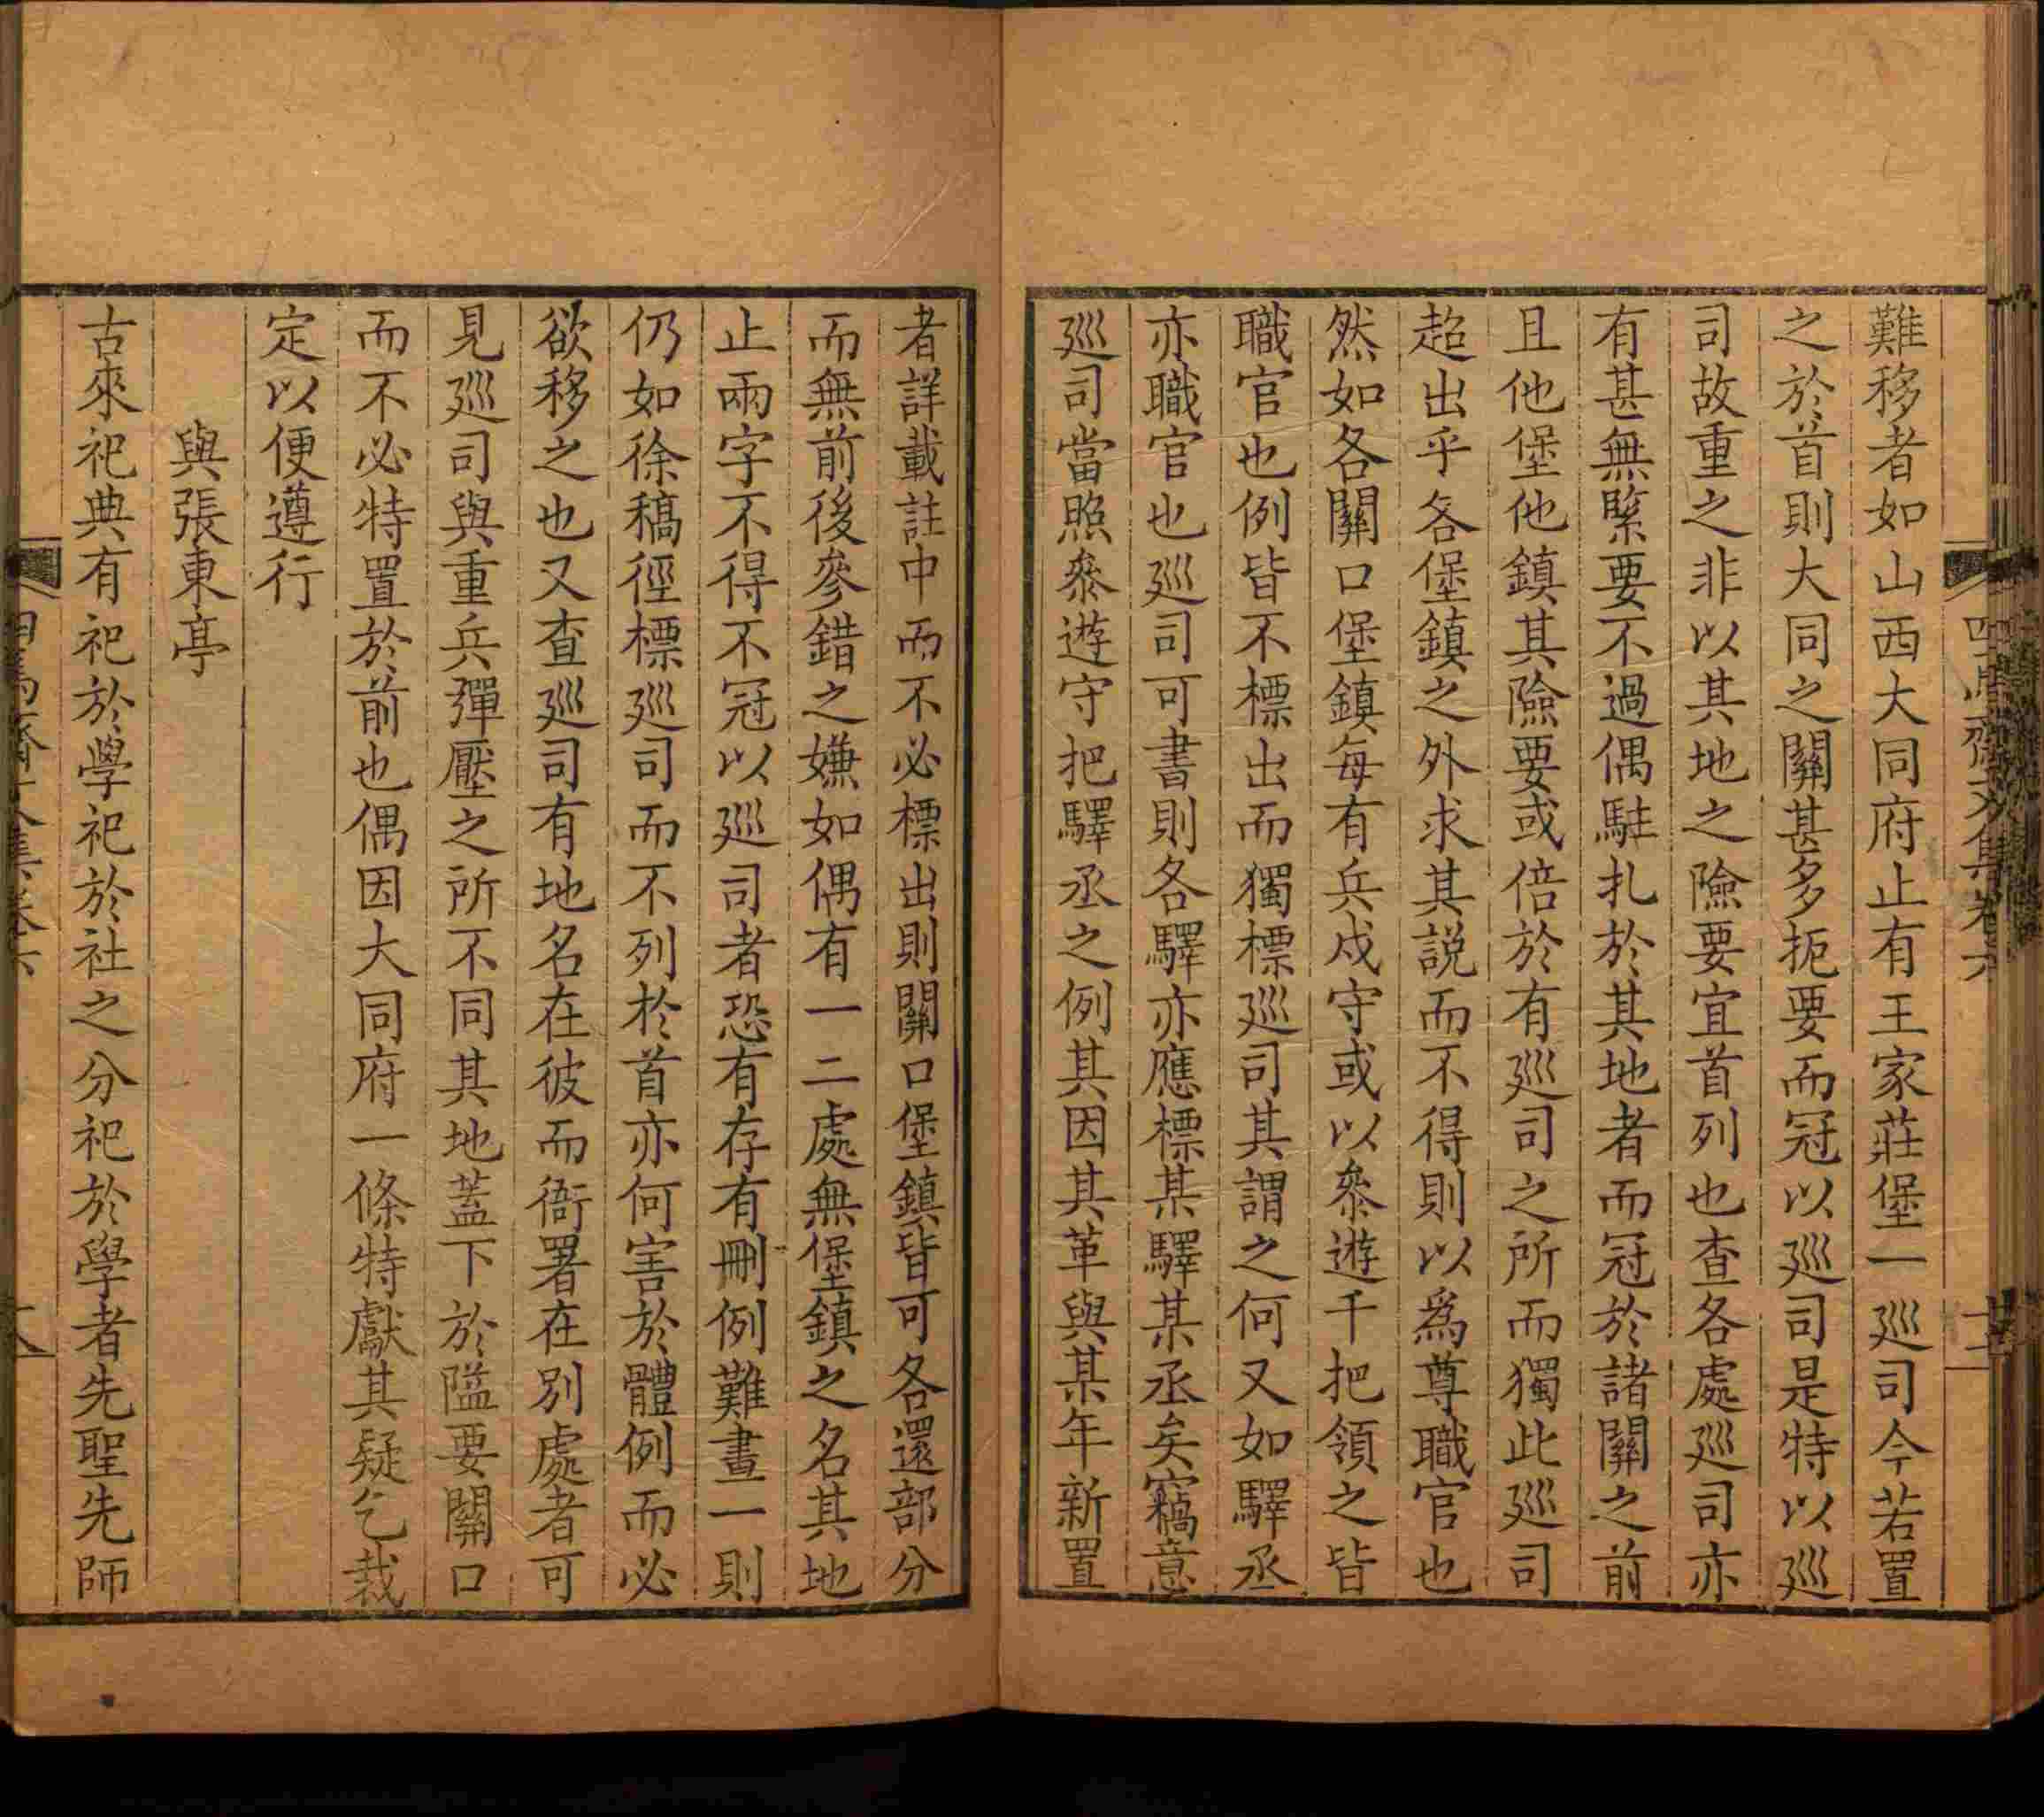 難移者如山西大同府止有王家莊堡一巡司今若置
之於首則大同之關甚多扼要而冠以巡司是特以巡
司故重之非以其地之險要宜首列也查各處巡司亦
有甚無緊要不過偶駐扎於其地者而冠於諸關之前
且他堡他鎮其險要或倍於有巡司之所而獨此巡司
超出乎各堡鎮之外求其說而不得則以為尊職官也
然如各關口堡鎮每有兵戍守或以叅遊千把領之皆
職官也例皆不標出而獨標巡司其謂之何又如驛丞
亦職官也巡司可書則各驛亦應標某驛某丞矣竊意
巡司當照叅遊守把驛丞之例其因其革與某年新置
者詳載註中而不必標出則關口堡鎮皆可各還部分
而無前後參錯之嫌如偶有一二處無堡鎮之名其地
止兩字不得不冠以巡司者恐有存有刪例難畫一則
仍如徐稿徑標巡司而不列於首亦何害於體例而必
欲移之也又查巡司有地名在彼而衙署在別處者可
見巡司與重兵彈壓之所不同其地蓋下於隘要關口
而不必特置於前也偶因大同府一條特獻其疑乞裁
定以便遵行
與張東亭
古來祀典有祀於學祀於社之分祀於學者先聖先師